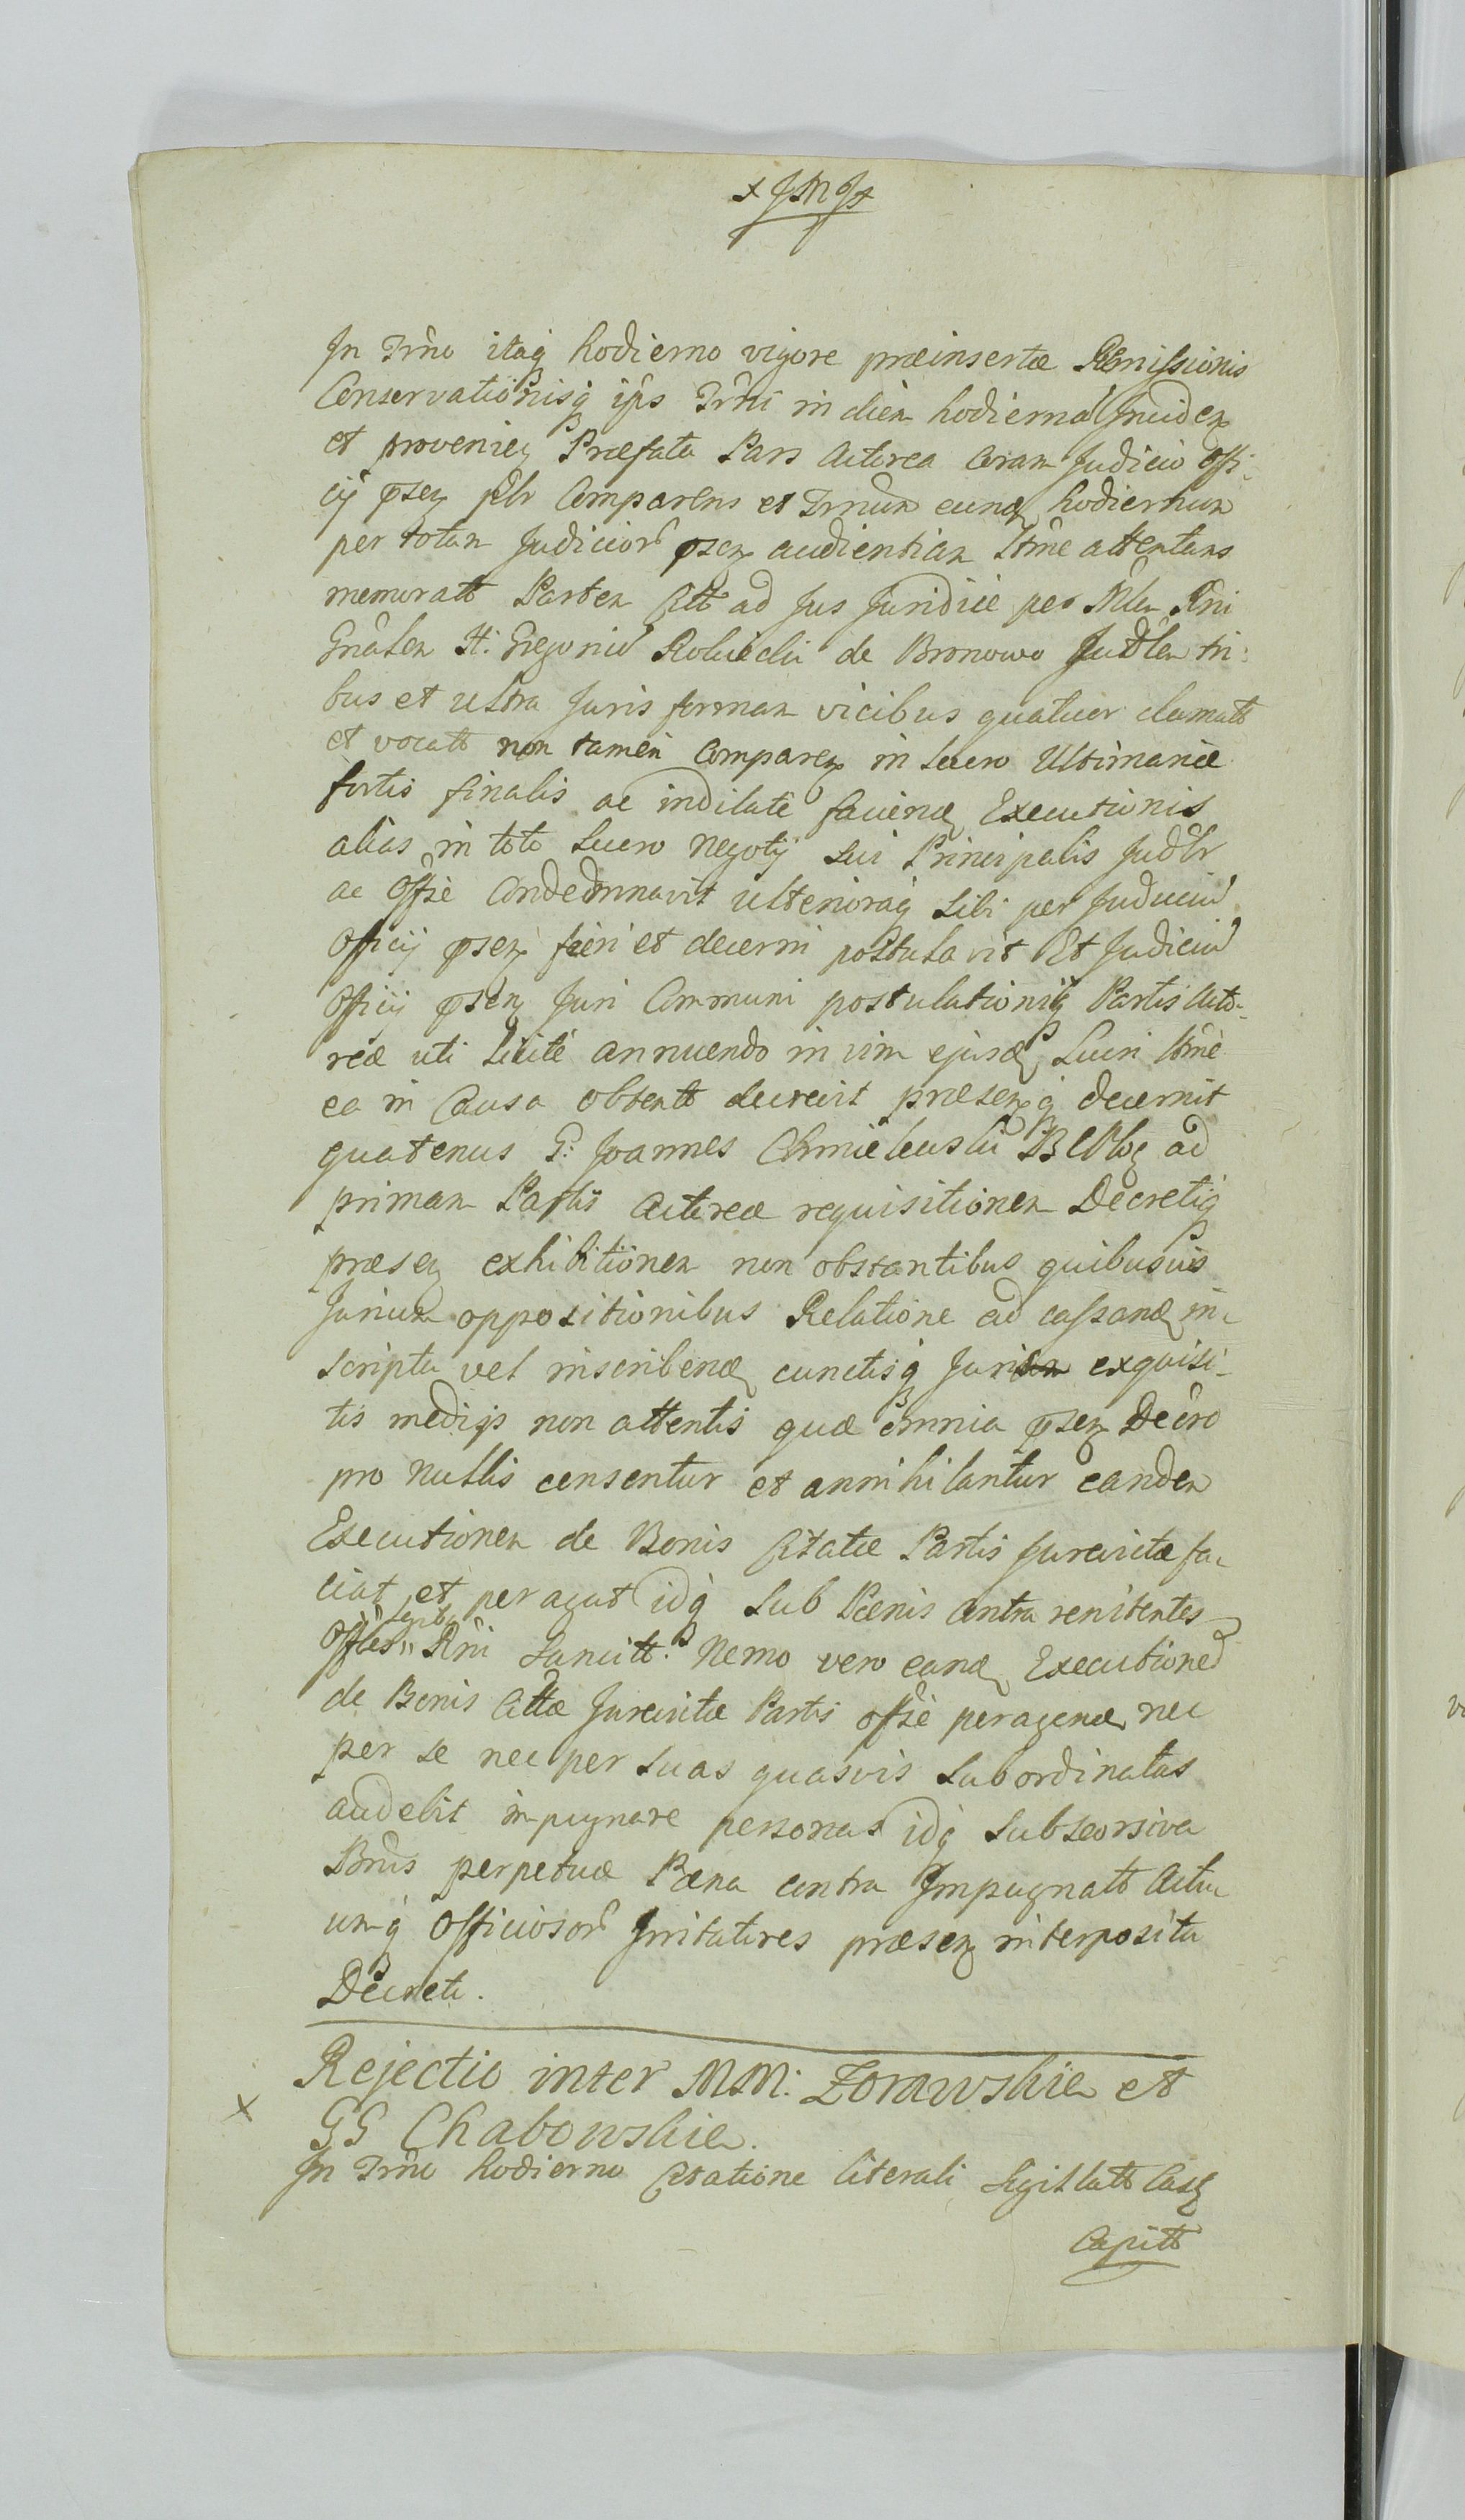 + J M J +
In Trno itaq hodierno vigore præinsertæ Remissionis
Conservationisq ips Trni in diem hodierna Inciden
et provenien Præfata Pars Actorea Coram Judicio Offi-
cij psen pltr Comparens et Trnum eund hodiernum
per totam Judicior psen audientiam Ltme attentans
memoratt Partem Citt ad Jus Juridice per Mlem Rni
Gnalem H: Gregoriu Rolviecki de Bronowo Judlem tri:
bus et ultra Juris formam vicibus quatuor clamatt
et vocatt non tamen Comparen in Lucro Ultimariæ
fortis finalis ac indilate faciend Executionis
alias in toto Lucro Negotij Sui Principalis Judlr
ac Offse Condemnavit ulterioraq Sibi per Judiciu
Officij psen fieri et decerni postulavit Et Judiciu
Officij psen Juri Communi postulationiq Partis Acto-
reæ uti Licitè annuendo in vim ejusd Lucri Ltme
ea in Causa obtentt decrevit præsenq decernit
quatenus G: Joannes Chmielewski ad
primam Partis Actoreæ requisitionem Decretiq
præsen exhibitionem non obstantibus quibusvis
Jurium oppositionibus Relatione ad cassand in-
scripta vel inscribend cunctisq Juris exquisi-
tis medijs non attentis quæ omnia psen Decro
pro nullis censentur et annihilantur eandem
Executionem de Bonis Citatæ Partis Jurevictæ fa-
ciat et peragat idq Sub Pænis contra renitentes
Offles Rni Sancitt. Nemo vero eand Executione
de Bonis Cittæ Jurevictæ Partis offse peragend nec
per se nec per Suas quasvis Subordinatas
audebit impugnare personas idq Sub seorsiva
Bnis perpetuæ Pæna contra Impugnatt Actu
umq Officiosor Irritatores præsen interposita
Decreto.
Rejectio inter MM: Zorawskiem et
x
GG Chabowskiem.
In Trno hodierno Citatione literali Sigillatt Cast
Capitt